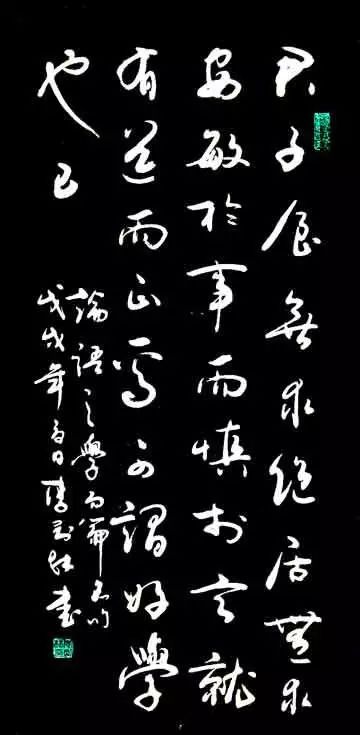 君子食無求飽居無求
安敏於事而慎於言就
有道而正焉可謂好學
也已
論語之學而篇名句
戊戌年日書